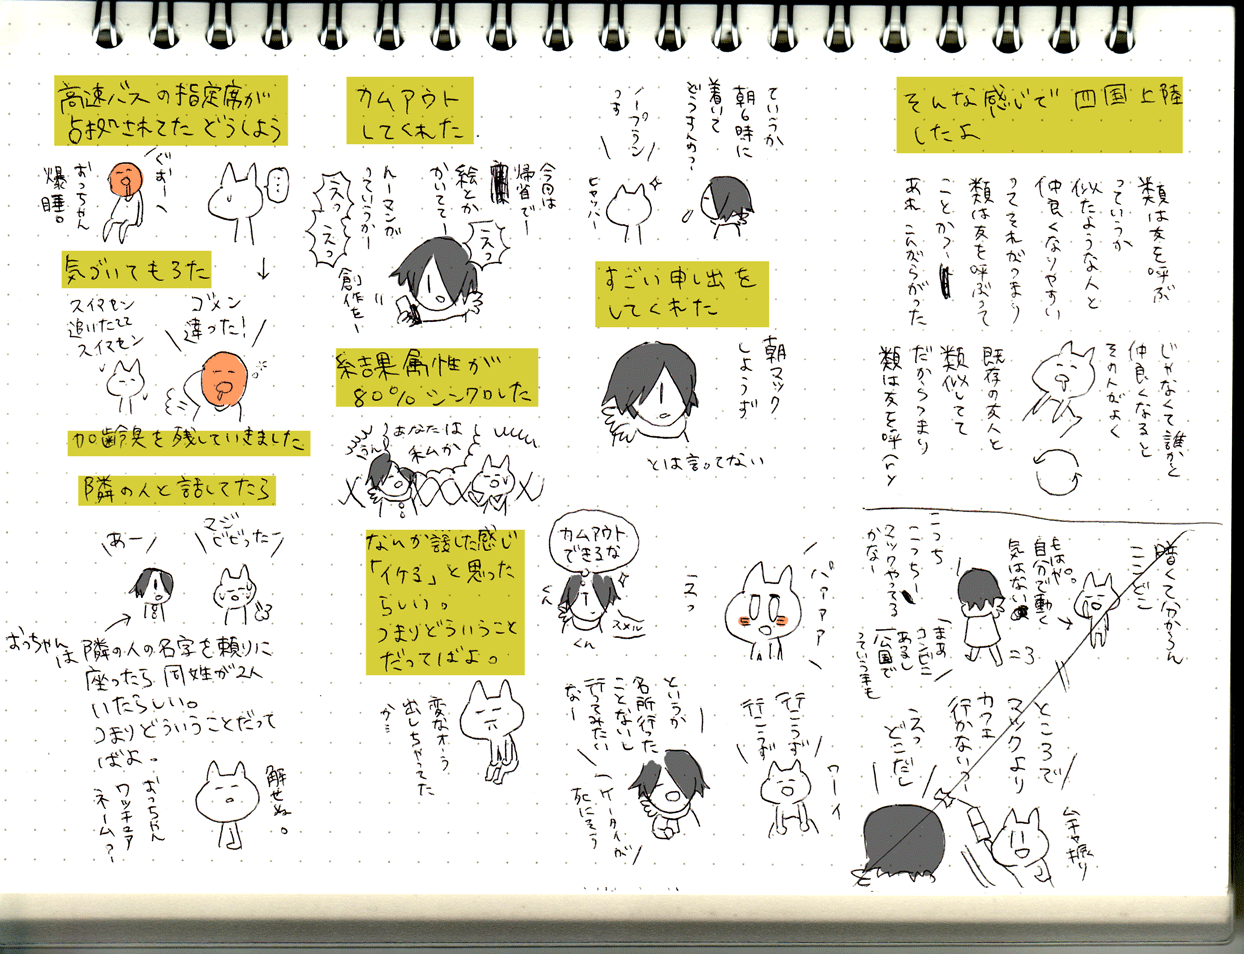 高速バスの指定席が
占拠されてた どうしよう
…
ぐおーー
おっちゃん
爆睡。
気づいてもろた
ゴメン
違った!
スイマセン
追いたてて
スイマセン
加齢臭を残していきました
隣の人と話してたら
あー
マジ
ビビったー
おっちゃんは
隣の人の名字を頼りに
座ったら同姓が2人
いたらしい。
つまりどういうことだって
ばよ。
解せぬ。
おっちゃん
ワッチュア
ネーム?
カムアウト
してくれた
今回は
帰省でー
絵とか
かいててー
んーマンガ
っていうかー
創作をー
えっ
えっ
えっ
結果属性が
80%シンクロした
あなたは
私か
なんか話した感じ
「イケる」と思った
らしい。
つまりどういうこと
だってばよ。
変なオーラ
出しちゃってた
か…
ていうか
朝6時に
着いて
どうすんの?
ノープラン
っす
ヒャッハー
すごい申し出を
してくれた
朝マック
しようず
とは言ってない
カムアウト
できるな
くん
くん
スメル
えっ
パァァァ
というか
名所行った
ことないし
行ってみたい
なー
ケータイが
死にそう
行こうず
行こうず
ワーイ
そんな感じで 四国上陸
したよ
類は友を呼ぶ
っていうか
似たような人と
仲良くなりやすい
ってそれがつまり
類は友を呼ぶって
ことかつ
あれ こんがらがった
じゃなくて誰かと
仲良くなると
その人がよく
既存の友人と
類似してて
だからつまり
類は友を呼(ry
暗くて分からん
ここどこ
もはや。
自分で動く
気はない
こっち
こっちー
マックやってる
かなー
まあ
コンビニ
あるし
公園で
っていう手も
ところで
マックより
カフェ
行かない?
えっ
どこだし
ムチャ振り